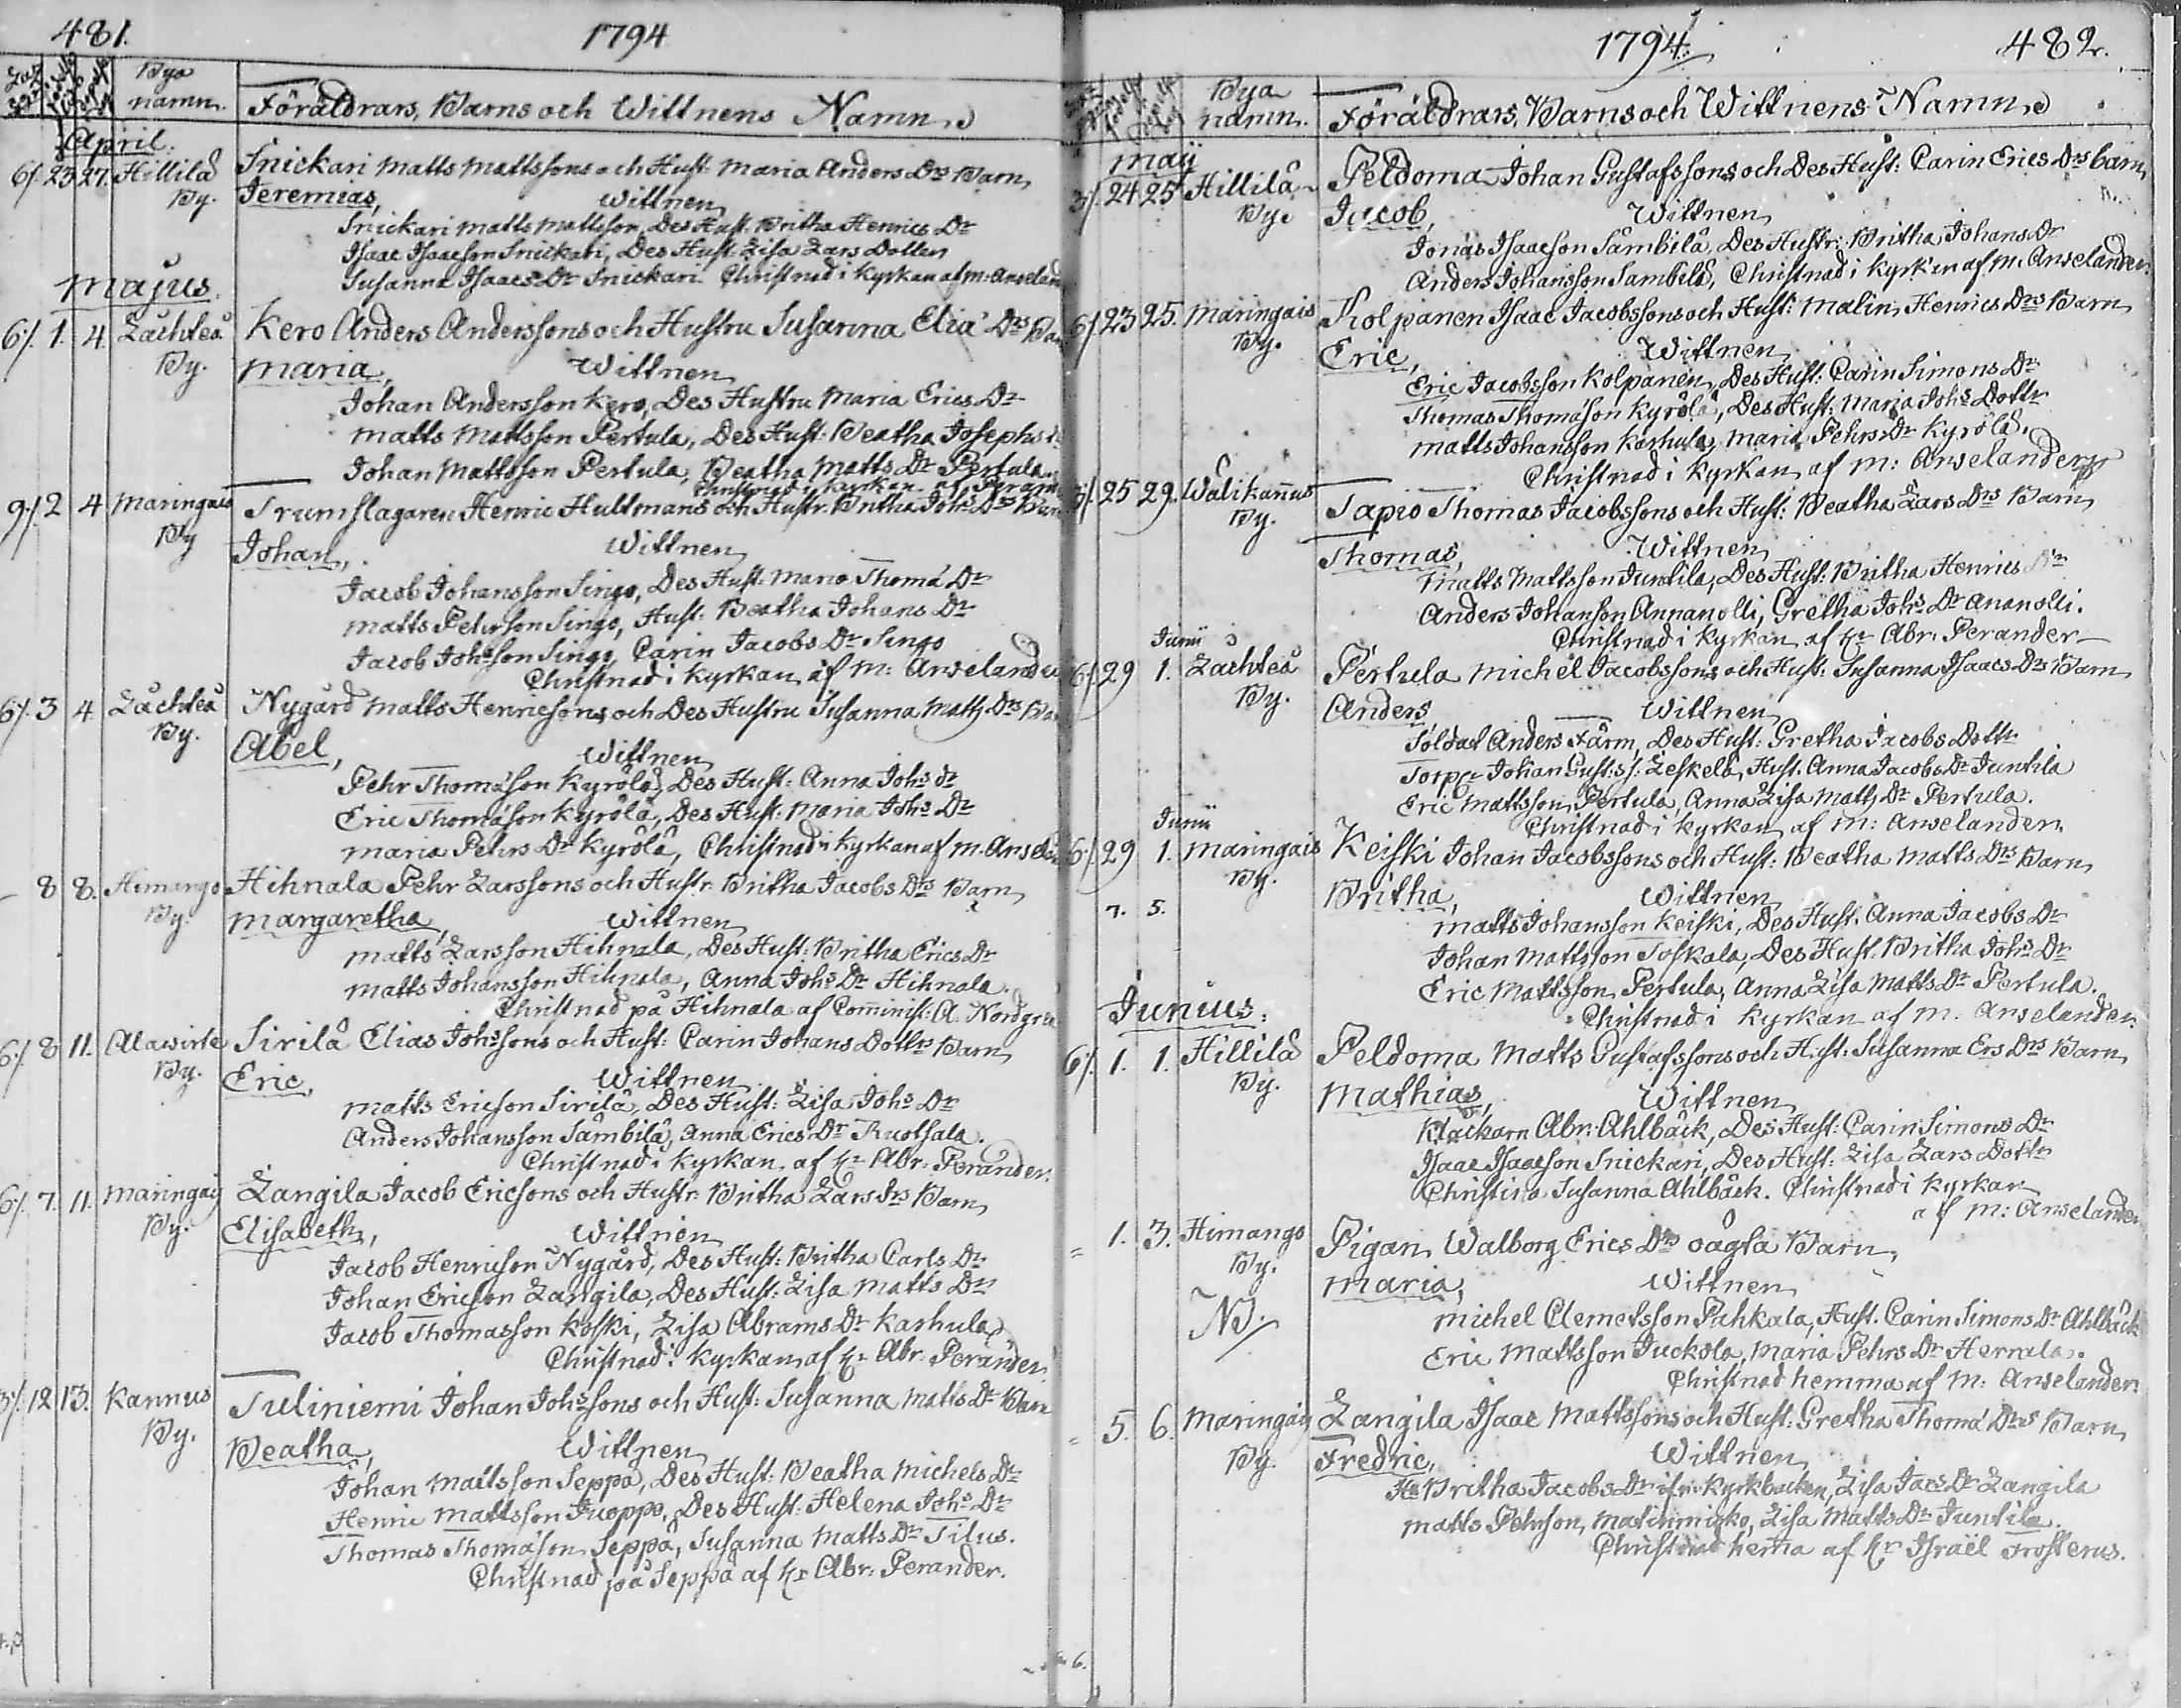 481.
1794
Bya
namn.
Föräldrars, Barns och Wittnens Namn
April.
6/. 23 27. Hillilä Snickari Matts Mattssons och Hust: Maria Anders Drs Barn
By. Jeremias, Wittnen
Snickari Matts Mattsson, Des Hust: Britha Henrics Dr
Isaac Isaacson Snickari, Des Hust: Lisa Lars Dotter
Susanna Isaacs Dr Snickari. Christnad i Kyrkan af m: Anseland
Majus.
6/. 1. 4. Lächteå Kero Anders Anderssons och Hustru Susanna Eliæ Drs Bar
By. Maria, Wittnen
Johan Andersson Kero, Des Hustru Maria Erics Dr
Matts Mattsson Pertula, Des Hust: Beatha Josephs
Johan Mattsson Pertula, Beatha Matts Dr Pertula
Christnad i Kyrkan af
9/. 2 4 Maringais Trumslagaren Henric Hultmans och Hustr: Britha Johs Drs Barn
By Johan, Wittnen
Jacob Johansson Singo, Des Hust: Maria Thomæ Dr
Matts Pehrson Singo, Hust: Beatha Johans Dr
Jacob Johsson Singo, Carin Jacobs Dr Singo
Christnad i Kyrkan af m: Anselander
6/. 3 4 Lächteå Nygård Matts Henricsons och Des Hustru Susanna Matts Drs Bar
By. Abel, Wittnen
Pehr Thomæson Kyrölä, Des Hust: Anna Johs dr
Eric Thomæson Kyrölä, Des Hust: Maria Johs Dr
Maria Pehrs Dr Kyrölä, Christnad i Kyrkan af m. Anseland
8 8. Himango Hihnala Pehr Larssons och Hustr: Britha Jacobs Drs Barn
By. Margaretha, Wittnen
Matts Larsson Hihnala, Des Hust: Britha Erics Dr
Matts Johansson Hihnala, Anna Johs Dr Hihnala.
Christnad på Hihnala af Comminist: A. Nordgren
6/. 8 11. Alawirte Sirilä Elias Johssons och Hust: Carin Johans Dottrs Barn
By. Eric, Wittnen
Matts Ericson Sirilä, Des Hust: Lisa Johs Dr
Anders Johansson Sämbilä, Anna Erics Dr Ruotsala.
Christnad i Kyrkan af Hr Abr: Perander.
6/. 7. 11. Maringais Langila Jacob Ericsons och Hustr: Britha Lars Drs Barn
By. Elisabeth, Wittnen
Jacob Henricson Nygård, Des Hust: Britha Carls Dr
Johan Ericson Langila, Des Hust: Lisa Matts Dr
Jacob Thomasson Koski, Lisa Abrams Dr Karhula
Christnad i Kyrkan af Hr Abr: Perander.
3/. 12 13. Kannus Tuliniemi Johan Johssons och Hust: Susanna Matts Dr Barn
By. Beatha, Wittnen
Johan Mattsson Seppä, Des Hust: Beatha Michels Dr
Henric Mattsson Juoppo, Des Hust: Helena Johs Dr
Thomas Thomæson Seppä, Susanna Matts Dr Titus.
Christnad på Seppä af Hr Abr: Perander.
1794.
482.
Bya
namn.
Föräldrars, Barns och Wittnens Namn
Maij
3/. 24 25 Hillilä Peldoma Johan Gustafssons och Des Hust: Carin Erics Drs barn
By. Jacob, Wittnen
Jonas Isaacson Sämbilä, Des Hustr: Britha Johans Dr
Anders Johansson Sambilä, Christnad i Kyrkan af m. Anselander.
6/. 23 25. Maringais Kolpanen Isaac Jacobssons och Hust: Malin Henrics Drs Barn
By. Eric, Wittnen
Eric Jacobsson Kolpanen, Des Hust: Carin Simons Dr
Thomas Thomæson Kyrölä, Des Hust: Maria Johs Dottr
Matts Johansson Karhula, Maria Pehrs Dr Kyrölä.
Christnad i Kyrkan af m: Anselander
3/. 25 29. Wälikannus Tapio Thomas Jacobssons och Hust: Beatha Lars Drs Barn
By. Thomas, Wittnen
Matts Mattsson Juntila, Des Hust: Britha Henrics Dr
Anders Johanson Annanolli, Gretha Johs Dr Ananolli.
Christnad i Kyrkan af Hr Abr: Perander
Junii
6/. 29 1. Lächteå Pertula Michel Jacobssons och Hust: Susanna Isaacs Drs Barn
By. Anders Wittnen
Soldat Anders Färm, Des Hust: Gretha Jacobs Dottr
Torpr Johan Gust:s/: Leskelä, Hust: Anna Jacobs Dr Juntila
Eric Mattsson Pertula, Anna Lisa Matts Dr Pertula.
Christnad i Kyrkan af m: Anselander.
Junii
6/. 29 1. Maringais Keiski Johan Jacobssons och Hust: Beatha Matts Drs Barn
By. Britha, Wittnen
7. 5.
Matts Johansson Keiski, Des Hust: Anna Jacobs Dr
Johan Mattsson Toskala, Des Hust: Britha Johs Dr
Eric Mattsson Pertula, Anna Lisa Matts Dr Pertula.
Christnad i Kyrkan af m. Anselander.
Junius.
6/. 1. 1. Hillilä Peldoma Matts Gustafssons och Hust: Susanna Ers Drs Barn
By. Mathias, Wittnen
Klåckarn Abr: Ahlbäck, Des Hust: Carin Simons Dr
Isaac Isaacson Snickari, Des Hust: Lisa Lars Dottr
Christina Susanna Ahlbäck. Christnad i Kyrkan
af m: Anselander
1. 3. Himango Pigan Walborg Erics Drs oägta Barn
By. Maria, Wittnen
NB. Michel Clemetsson Pahkala, Hust: Carin Simons Dr Ahlbäck
Eric Mattsson Juckola, Maria Pehrs Dr Herrala.
Christnad hemma af m: Anselander.
5. 6. Maringais Langila Isaac Mattssons och Hust: Gretha Thomæ Drs Barn
By. Fredric, Wittnen
Hu Britha Jacobs Dr ifrån Kyrkbacken, Lisa Jacs Dr Langila
Matts Pehrson, Matinmicko, Lisa Matts Dr Juntila.
Christnad hema af Hr Israël Frosterus.